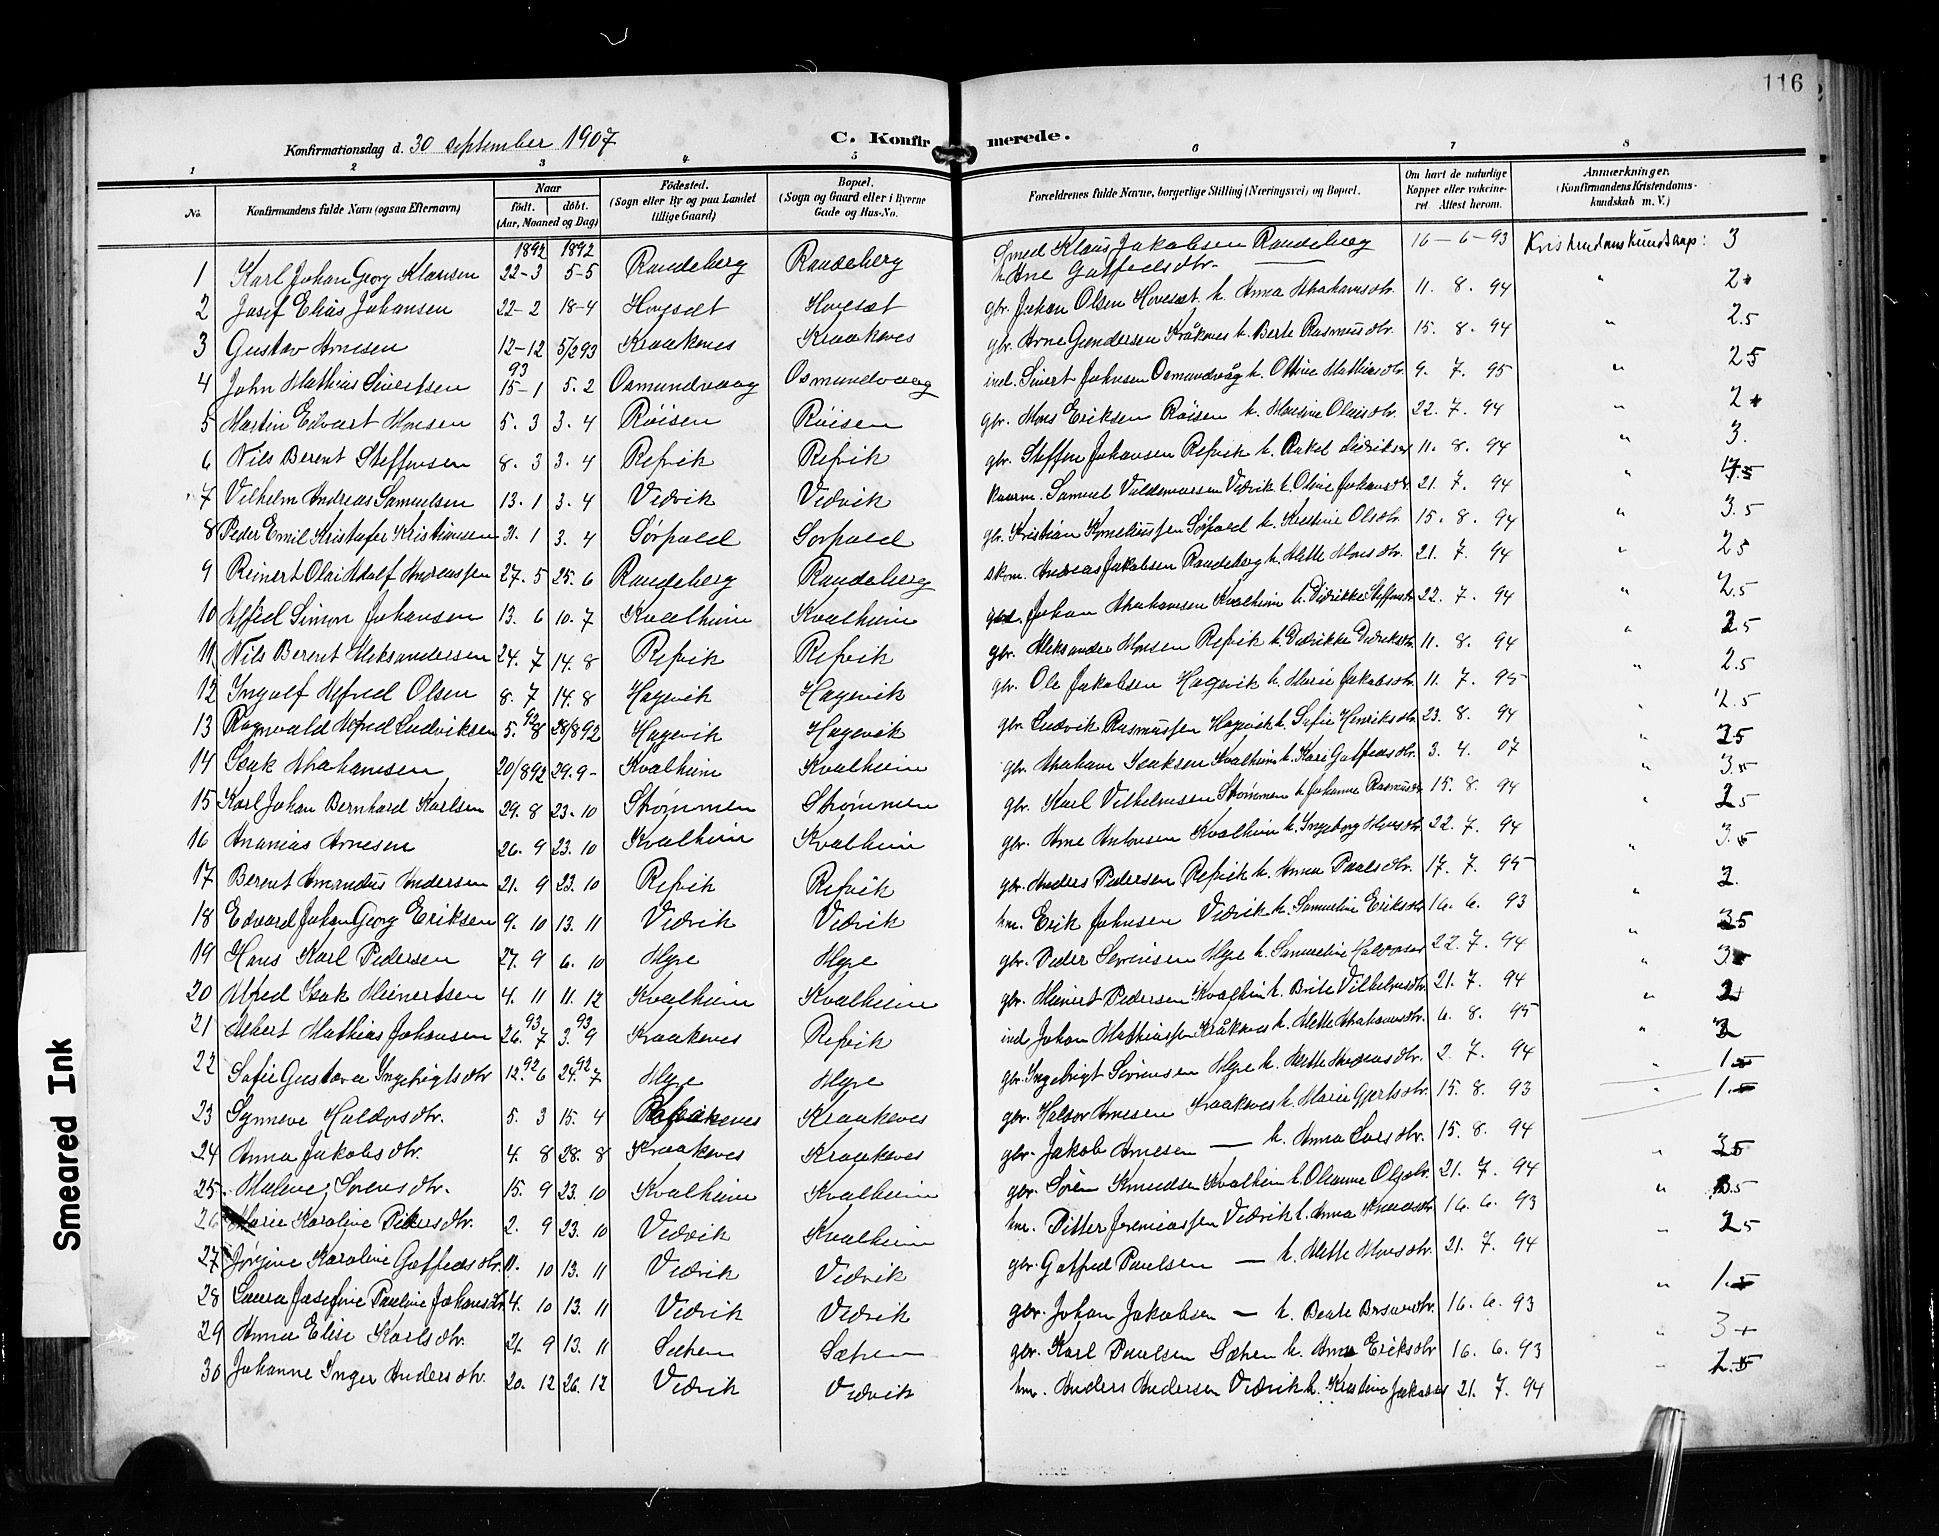 116
Konfirmationsdag d. 30 september 1907
C. Konfirmerede.
1 2 3 4 5 6 7 8
No.
Konfirmandens fulde Navn (ogsaa Efternavn)
Naar
født. døbt.
(Aar, Maaned og Dag)
Fødested.
(Sogn eller By og paa Landet
tillige Gaard)
Bopæl.
(Sogn og Gaard eller i Byerne
Gade og Hus-No.
Forældrenes fulde Navne, borgerlige Stilling (Næringsvei) og Bopæl.
Om havt de naturlige
Kopper eller vakcine-
ret Attest herom.
Anmærkninger.
(Konfirmandens Kristendoms-
kundskab m. V.)
1892 1892
1 Karl Johan Georg Klausen 22-3 5-5 Raudeberg Raudeberg Smed Klaus Jakobsen Raudeberg 16-6-93 Kristendomskundskap: 3
2 Josef Elias Johansen 22-2 18-4 Hovesæt Hovesæt gbr. Johan Olsen Hovesæt h. Anna 11. 8. 94 " 2
3 Gustav Arnesen 12-12 5/2 93 Kraakenes Kraakenes gbr. Arne Gundersen Kråkenes h. Berte Rasmusdtr. 15. 8. 94 " 2.5
93
4 John Mathias Sivertsen 15-1 5. 2 Osmundvaag Osmundvaag ind. Sivert Johnsen Osmundvåg h. Oline Mathiasdtr. 9. 7. 95 " 25
5 Martin Edvart Monsen 5. 3 3. 4 Røisen Røisen gbr. Mons Eriksen Røisen h. Olaisdtr. 22. 7. 94 " 2
6 Nils Berent Steffensen 8. 3 3. 4 Refvik Refvik gbr. Steffen Johansen Refvik h. Rakel 11. 8. 94 " 3.
7 Vilhelm Andreas Samuelsen 13. 1 3. 4 Vedvik Vedvik Samuel Valdemarsen Vedvik h. Oline Johansdtr. 21. 7. 94 "
8 Peder Emil Kristofer Kristiansen 31. 1 3. 4 Sørpold Sørpold gbr. Kristian Korneliussen Sørpold h. Kristine Olsdtr. 15. 8. 94 " 3.5
9 Reinert Olai Adolf Andreassen 27. 5 25. 6 Raudeberg Raudeberg skom. Andreas Jakobsen Raudeberg h. Mette Monsdtr. 21. 7. 94 " 25
10 Alfred Simon Johansen 13. 6 10. 7 Kvalheim Kvalheim Johan Kvalheim h. Didrikke Steffensdtr 22. 7. 94 " 2.5
11 Nils Berent Aleksandersen 24. 7 14. 8 Refvik Refvik gbr. Aleksander Monsen Refvik h. Didrikke Didriksdtr. 11. 8. 94 " 25
12 Ingolf Alfred Olsen 8. 7 14. 8 Hagevik Hagevik gbr. Ole Jakobsen Hagevik h. Marie Jakobsdtr. 11. 7. 95 " 2.5
13 Ragnvald Alfred Ludviksen 5. 8 92 28/8 92 Hagevik Hagevik gbr. Ludvik Rasmussen Hagevik h. Sofie Henriksdtr 23. 8. 94 " 2.5
14 Isak Abrahamsen 20/8 92 29. 9- Kvalheim Kvalheim gbr. Abraham Isaksen Kvalheim h. Kari Gotfredsdtr. 3. 4. 07 " 25
15 Karl Johan Bernhard Karlsen 29. 8 23. 10 Strømmen Strømmen gbr. Karl Vilhelmsen Strømmen h. Johanne Rasmusdtr 15. 8. 94 " 3.
16 Ananias Arnesen 26. 9 23. 10 Kvalheim Kvalheim gbr. Arne Antonsen Kvalheim h. Ingeborg 22. 7. 94 " 25
17 Berent Amandus Andersen 21. 9 23. 10 Refvik Refvik gbr. Anders Pedersen Refvik h. Anna Paulsdtr. 17. 7. 95 " 3.
18 Edvard Johan Georg Eriksen 9. 10 13. 11 Vedvik Vedvik hm. Erik Johnsen Vedvik h. Samueline Eriksdtr 16. 6. 93 " 2.
19 Hans Karl Pedersen 27. 9 6. 10 Hyre Hyre gbr. Peder Hyre h. Samueline 22. 7. 94 " 35
20 Alfred Isak Meinertsen 4. 11 11. 12 Kvalheim Kvalheim gbr. Meinert Pedersen Kvalheim h. Brite Vilhelmsdtr. 21. 7. 94 " 3
21 Albert Mathias Johansen 26. 93 7 3. 93 9 Kraakenes Refvik ind Johan Mathiassen Kråkenes h. Mette 6. 8. 95 "
22 Sofie Gustava Ingebrigtsdtr 12. 92 6 24. 92 7 Hyre Hyre gbr. Ingebrigt Hyre h. Mette Andreasdtr. 2. 7. 94 "
23 Synneve Haldorsdtr. 5. 3 15. 4 Kraakenes gbr. Haldor Arnesen Kraakenes h. Marie 15. 8. 93 " 1.5
24 Anna Jakobsdtr. 4. 8 28. 8 Kraakenes Kraakenes gbr. Jakob Arnesen — h. Anna Larsdtr. 15. 8. 94 " 1.5
25 Malene Sørensdtr. 15. 9 23. 10 Kvalheim Kvalheim gbr. Søren Knudsen Kvalheim h. Oleanne Olsdtr. 21. 7. 94 " 35
26 Marie Karoline Pettersdtr. 2. 9 23. 10 Vedvik Kvalheim hm. Petter Jeremiassen Vedvik h. Anna Knudsdtr 16. 6. 93 "
27 Jørgine Karoline Gotfredsdtr. 11. 10 13. 11 Vedvik Vedvik gbr. Gotfred Paulsen — h. Mette Monsdtr. 21. 7. 94 25
28 Laura Josefine Pauline Johansdtr 4. 10 13. 11 Vedvik Vedvik gbr. Johan Jakobsen — h. Beate 16. 6. 93 " 1.5
29 Anna Elise Karlsdtr. 21. 9 13. 11 Sæthen Sæthen gbr. Karl Paulsen Sæthen h. Anna Eriksdtr 16. 6. 93 " 3+
30 Johanne Inger Andersdtr. 20. 12 26. 12 Vedvik Vedvik hm. Anders Andersen Vedvik h. Kristine 21. 7. 94 "
Smeared Ink